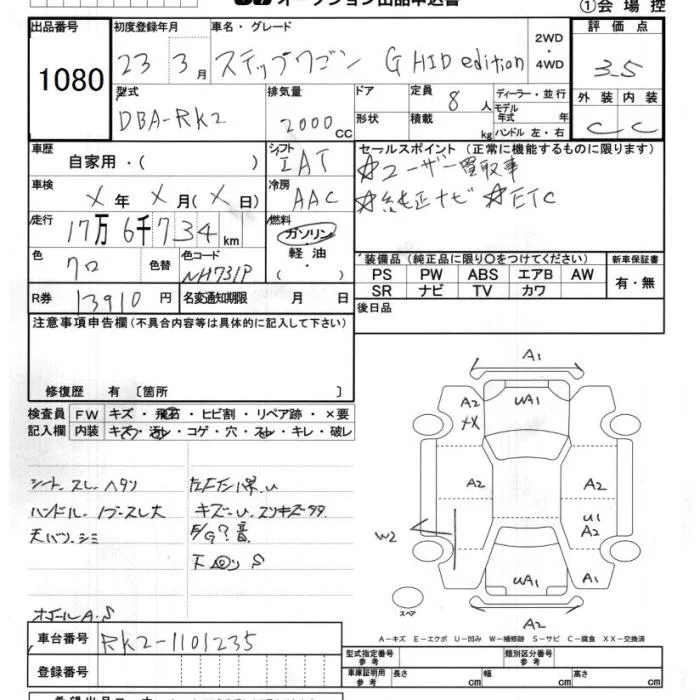 オークション出品申込書 ①会場控
出品番号 初度登録年月 車名・グレード 2WD・4WD 評価点
1080 23 3月 ステップワゴン G HID edition 3.5
型式 排気量 ドア 定員 8人 ディーラー・並行 外装 内装
DBA-RK2 2000cc 形状 積載 kg モデル年式 年 ハンドル 左・右 C C
車歴 シフト セールスポイント（正常に機能するものに限ります）
自家用・（ ） IAT ☆ユーザー買取車
車検 X年X月(X日) 冷房 AAC ☆純正ナビ ☆ETC
走行 17万6千734km 燃料 ガソリン・軽油・（ ）
色 クロ 色替 色コード NH731P
装備品（純正品に限り○をつけてください） 新車保証書
PS PW ABS エアB AW 有・無
SR ナビ TV カワ
R券 13910円 名変通知期限 月 日 後日品
注意事項申告欄（不具合内容等は具体的に記入して下さい）
修復歴 有 〔箇所 〕
検査員 FW キズ・飛石・ヒビ割・リペア跡・×要
記入欄 内装 キズ・汚レ・コゲ・穴・スレ・キレ・破レ
シート スレ ヘタリ
ハンドル・ノブ・スレ大 キズ・U・スリキズ多々
天バリ シミ E/G?音
下回り S
ホイールA・S
A1
A2 UA1 A2
XX
A2 A2
U1
A2
W2
UA1 A1
スペア A2
A－キズ E－エクボ U－凹み W－補修跡 S－サビ C－腐食 XX－交換済
車台番号 RK2-1101235
型式指定番号 参考 類別区分番号 参考
登録番号 車庫証明用 参考 長さ cm 幅 cm 高さ cm